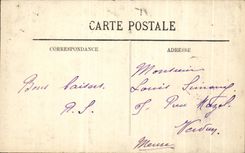 CARTE POSTALE
CORRESPONDANCE
ADRESSE
Bons baisers
Monsieur
Louis
Rue Mazel
Verdun
Meuse